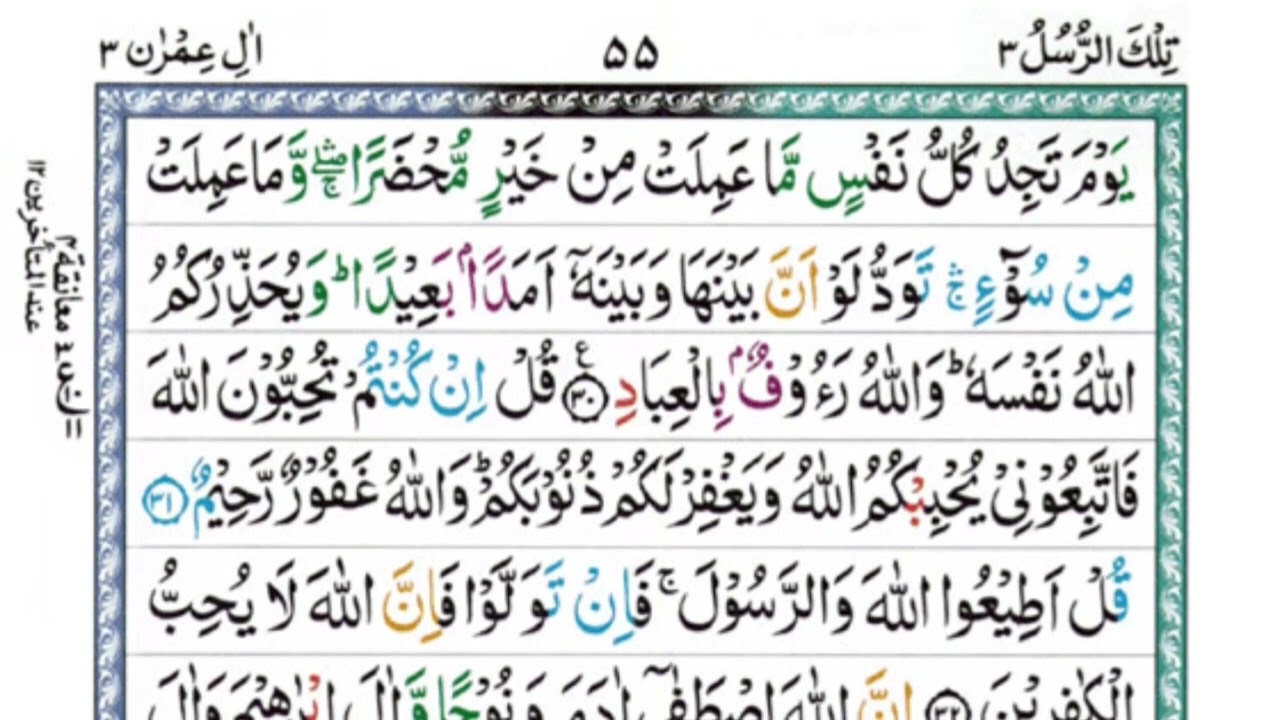 تِلْكَ الرُّسُلُ ٣
٥٥
اٰلِ عِمْرٰن ٣
يَوْمَ تَجِدُ كُلُّ نَفْسٍ مَّا عَمِلَتْ مِنْ خَيْرٍ مُّحْضَرًا ۛۖۚ وَّمَا عَمِلَتْ
مِنْ سُوْٓءٍ ۛۚ تَوَدُّ لَوْ اَنَّ بَيْنَهَا وَبَيْنَهٗۤ اَمَدًاۢ بَعِيْدًا ؕ وَيُحَذِّرُكُمُ
اللّٰهُ نَفْسَهٗ ؕ وَاللّٰهُ رَءُوْفٌۢ بِالْعِبَادِ ۧ ﴿٣٠﴾ قُلْ اِنْ كُنْتُمْ تُحِبُّوْنَ اللّٰهَ
فَاتَّبِعُوْنِيْ يُحْبِبْكُمُ اللّٰهُ وَيَغْفِرْ لَكُمْ ذُنُوْبَكُمْ ؕ وَاللّٰهُ غَفُوْرٌ رَّحِيْمٌ ﴿٣١﴾
قُلْ اَطِيْعُوا اللّٰهَ وَالرَّسُوْلَ ۚ فَاِنْ تَوَلَّوْا فَاِنَّ اللّٰهَ لَا يُحِبُّ
الْكٰفِرِيْنَ ﴿٣٢﴾ اِنَّ اللّٰهَ اصْطَفٰۤى اٰدَمَ وَنُوْحًا وَّاٰلَ اِبْرٰهِيْمَ وَاٰلَ
معانقة
عند المتأخرين ١٢